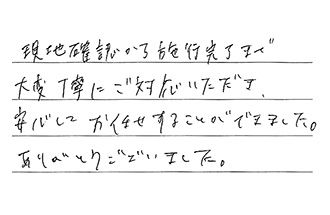 現地確認から施行完了まで
大変丁寧にご対応いただき、
安心してお任せすることができました。
ありがとうございました。